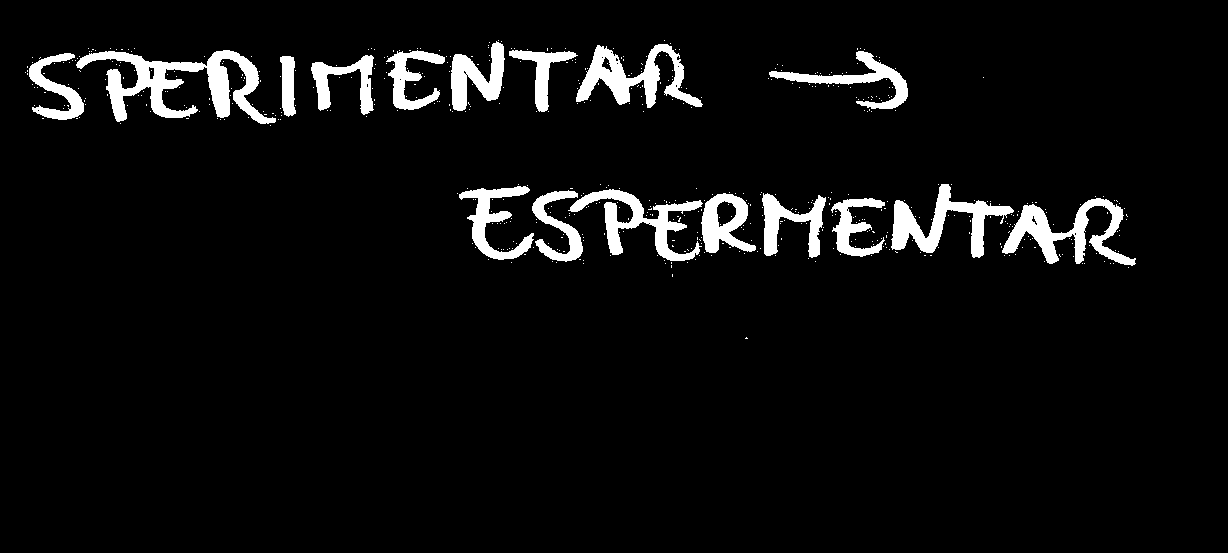 SPERIMENTAR →
ESPERMENTAR